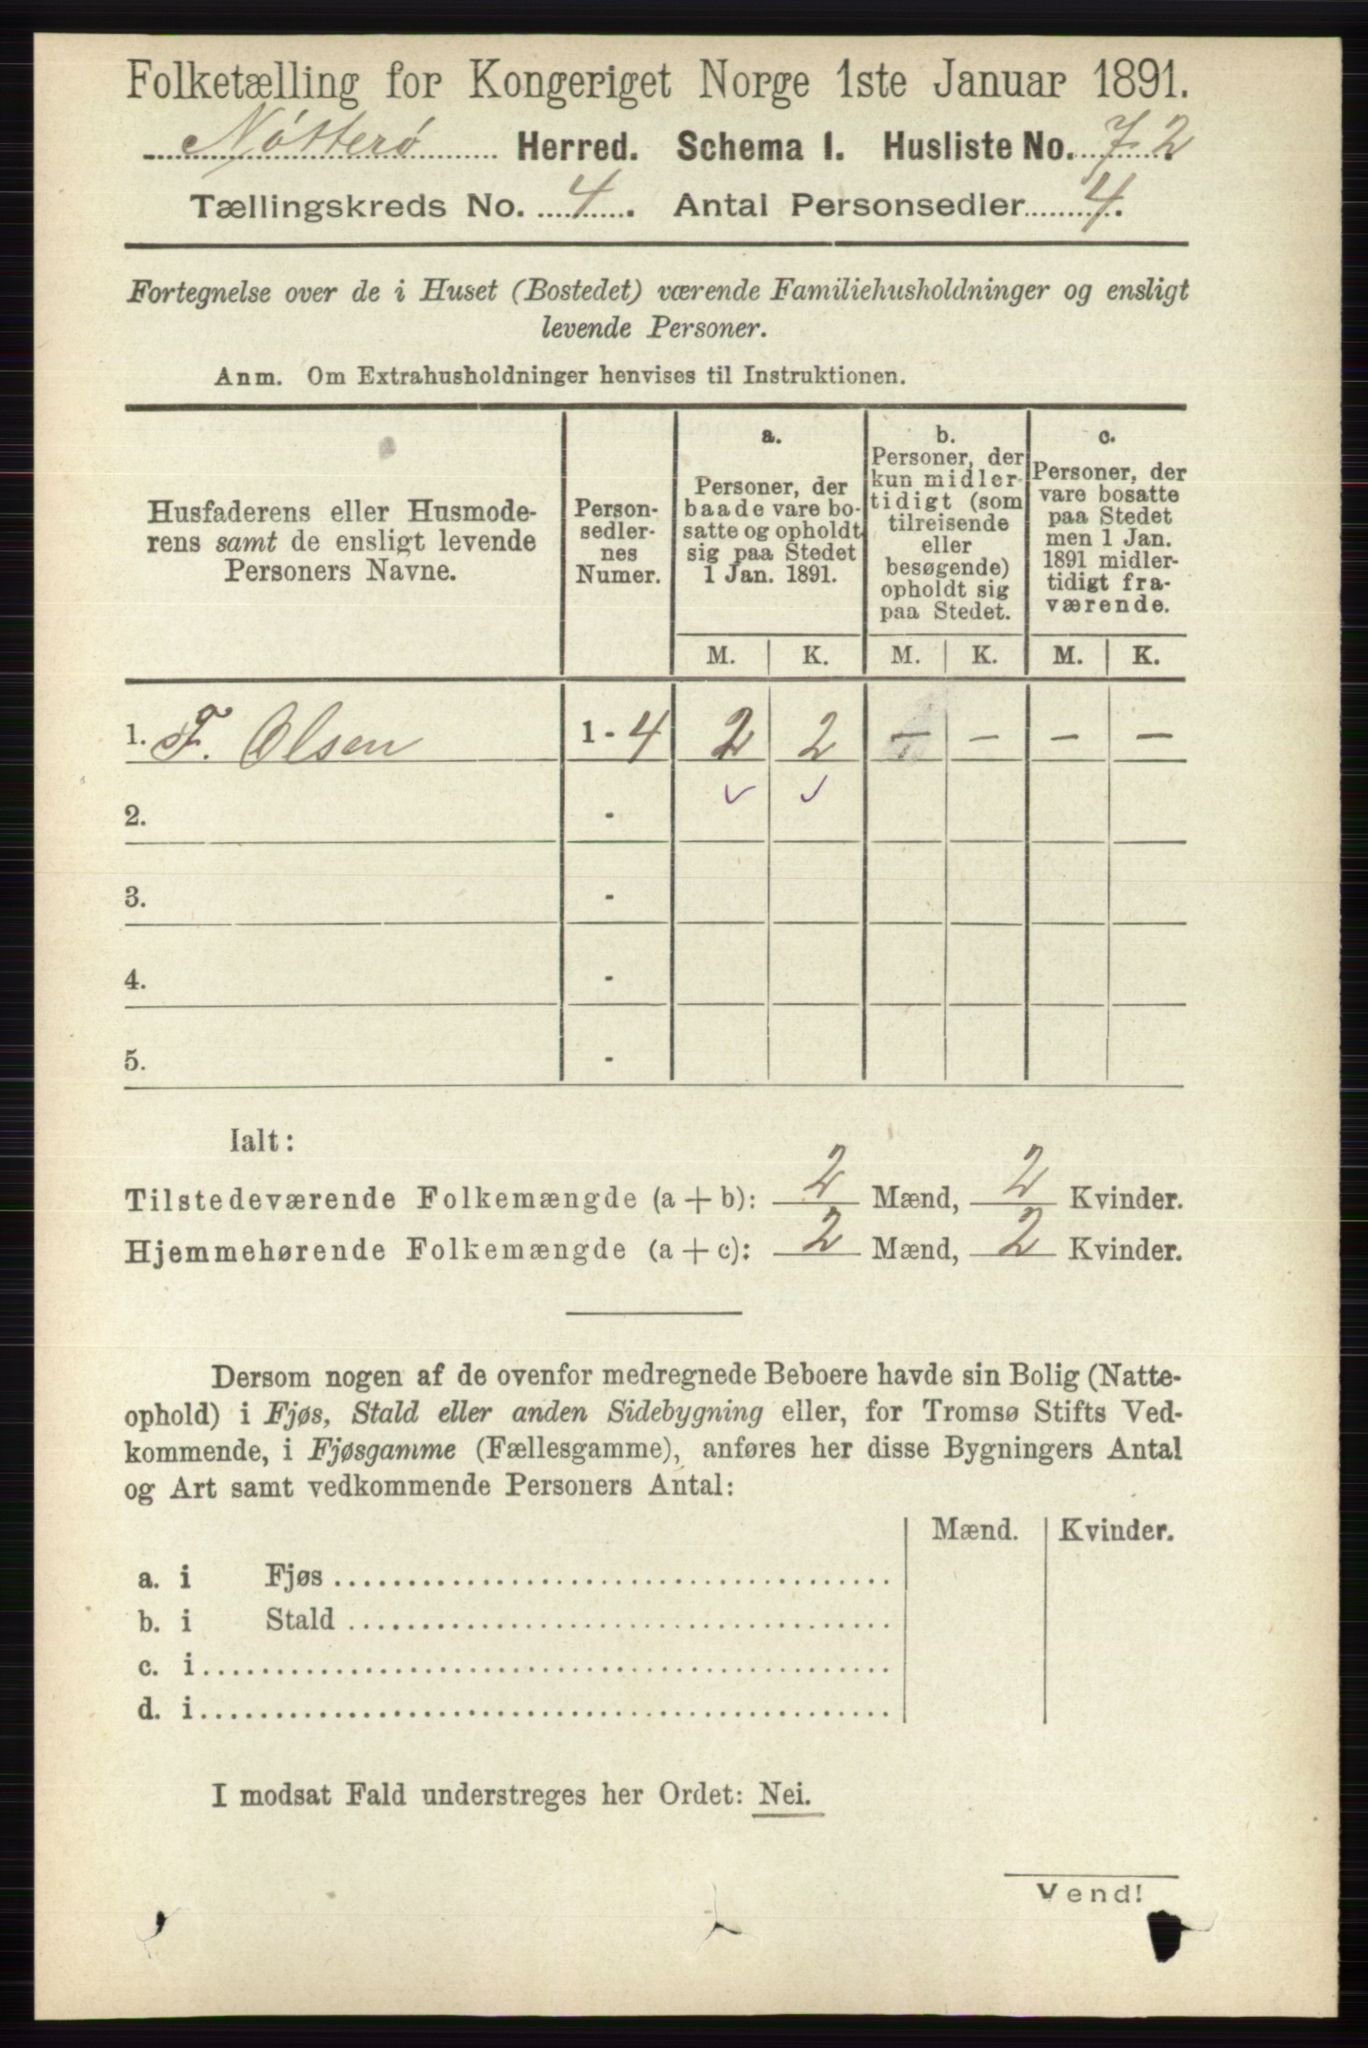 Folketælling for Kongeriget Norge 1ste Januar 1891.
Nøtterø Herred. Schema I. Husliste No. 72
Tællingskreds No. 4. Antal Personsedler 4.
Fortegnelse over de i Huset (Bostedet) værende Familiehusholdninger og ensligt
levende Personer.
Anm. Om Extrahusholdninger henvises til Instruktionen.
Husfaderens eller Husmode-
rens samt de ensligt levende
Personers Navne.
Person-
sedler-
nes
Numer.
a.
Personer, der
baade vare bo-
satte og opholdt
sig paa Stedet
1 Jan. 1891.
b.
Personer, der
kun midler-
tidigt (som
tilreisende
eller
besøgende)
opholdt sig
paa Stedet.
c.
Personer, der
vare bosatte
paa Stedet
men 1 Jan.
1891 midler-
tidigt fra-
værende.
M. K. M. K. M. K.
1. F. Olsen 1 - 4 2 2 – – – –
2. -
3. -
4. -
5. -
Ialt:
Tilstedeværende Folkemængde (a + b): 2 Mænd, 2 Kvinder.
Hjemmehørende Folkemængde (a + c): 2 Mænd, 2 Kvinder.
Dersom nogen af de ovenfor medregnede Beboere havde sin Bolig (Natte-
ophold) i Fjøs, Stald eller anden Sidebygning eller, for Tromsø Stifts Ved-
kommende, i Fjøsgamme (Fællesgamme), anføres her disse Bygningers Antal
og Art samt vedkommende Personers Antal:
Mænd. Kvinder.
a. i Fjøs
b. i Stald
c. i
d. i
I modsat Fald understreges her Ordet: Nei.
Vend!